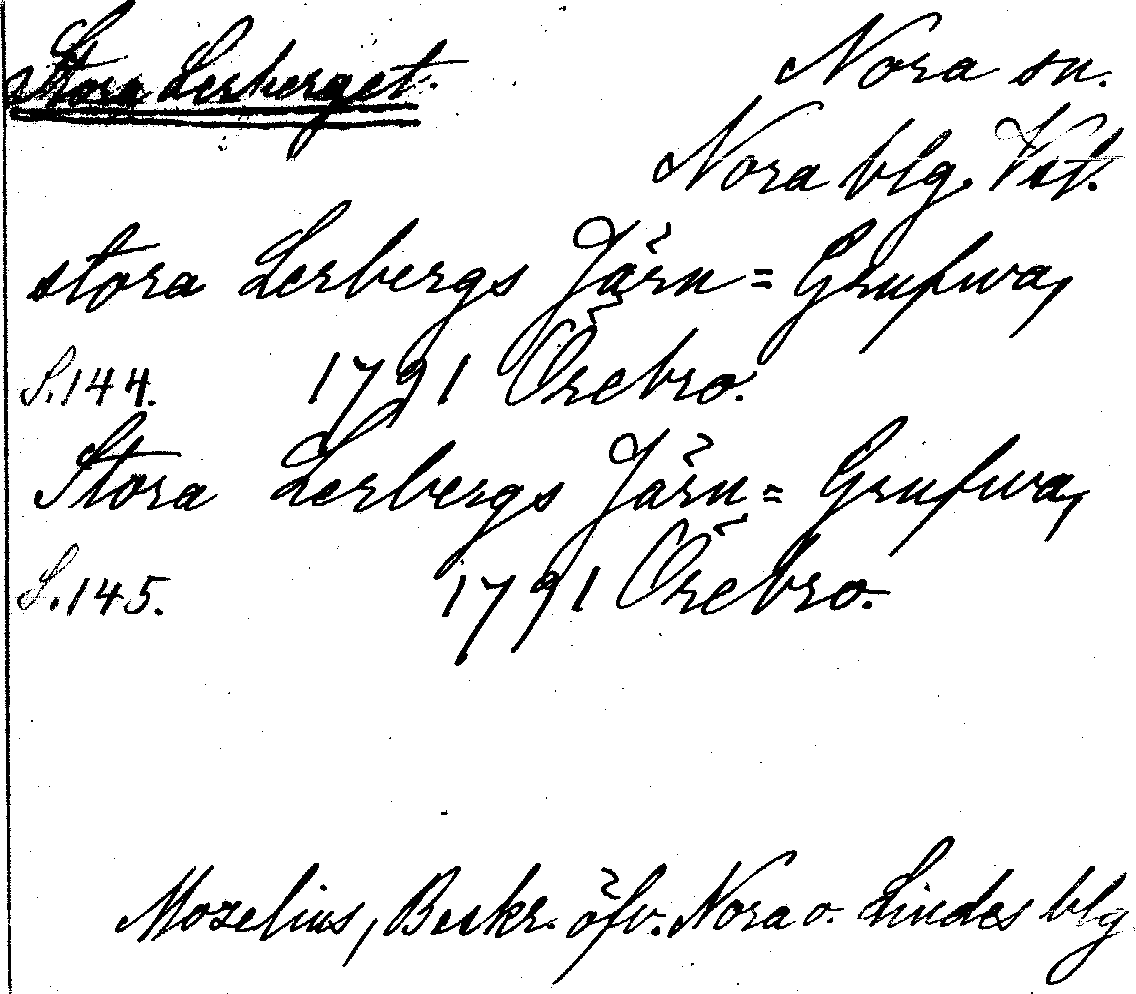 Stora Lerberget.
Nora sn.
Nora blg. Vstl.
stora Lerbergs Järn = Grufwa,
S. 144. 1791 Örebro.
Stora Lerbergs Järn = Grufwa,
S. 145. 1791 Örebro.
Mozelius, Beskr. öfv. Nora o. Lindes blg